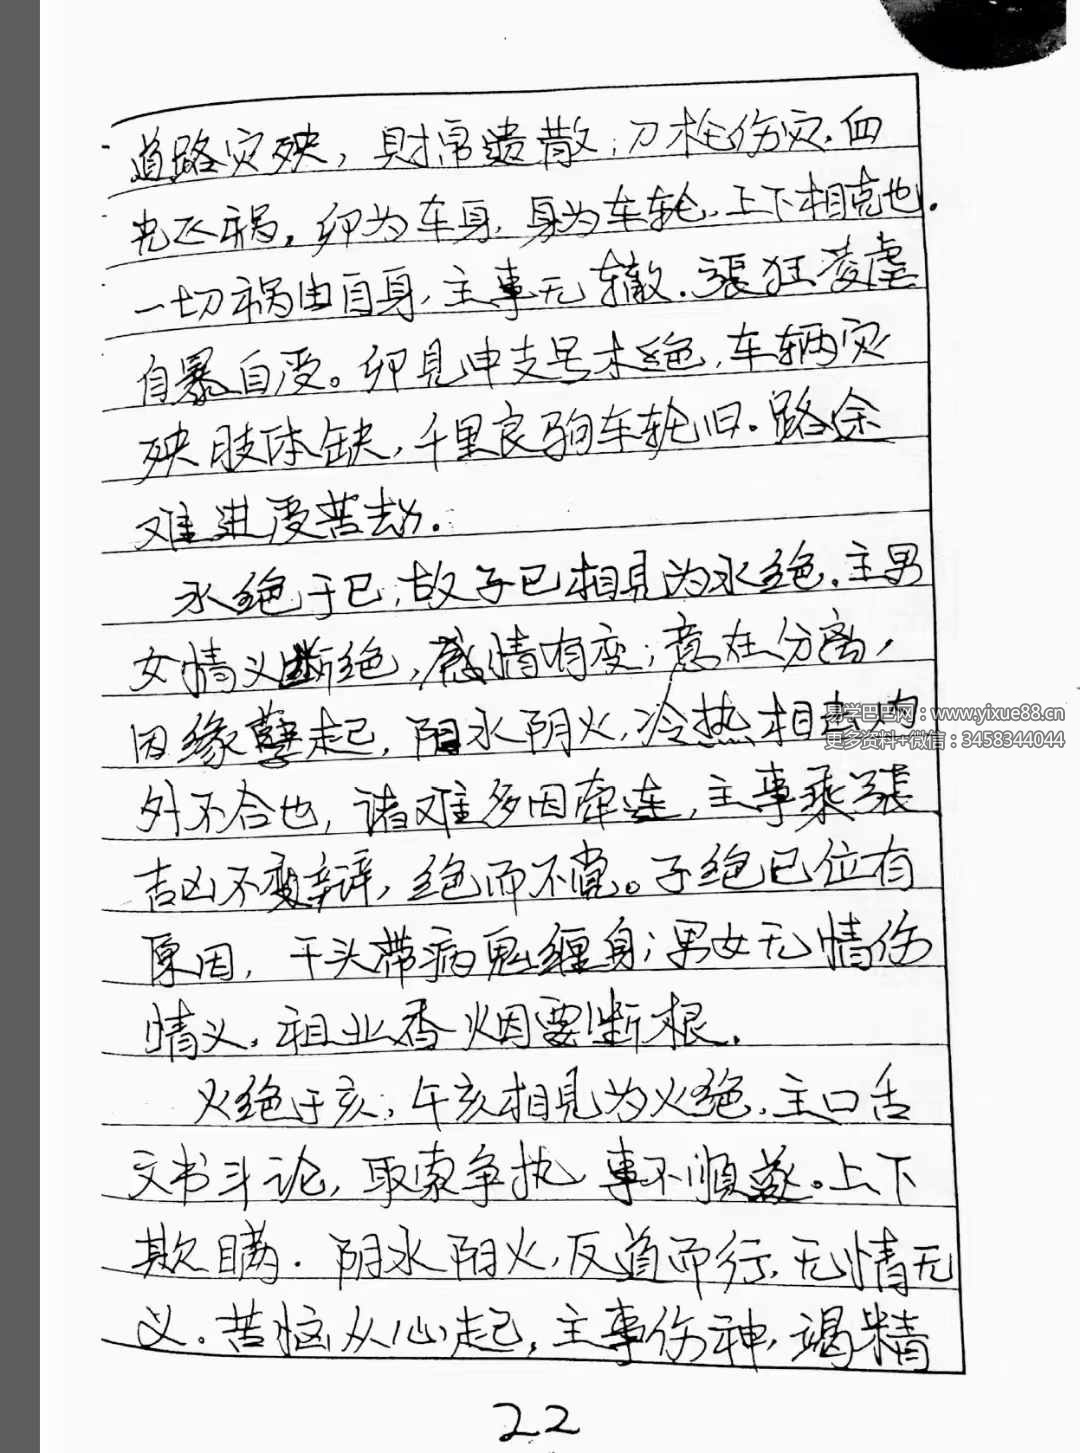 道路灾殃，财帛遗散；刀枪伤灾，血
光飞祸，卯为车身，身为车轮，上下相克也.
一切祸由自身，主事无辙.張狂凌虐
自暴自受。卯見申支号木绝，车辆灾
殃肢体缺，千里良驹车轮旧.路途
难进受苦劫.
水绝于巳；故子巳相見为水绝，主男
女情义断绝，感情有变；意在分离，
因缘孽起，阳水阴火，冷热相 内
外不合也，诸难多因牵连，主事乘張
吉凶不变辩，绝而不覚。子绝巳位有
原因，干头带病鬼缠身；男女无情伤
情义，祖业香烟要断根.
火绝于亥；午亥相見为火绝，主口舌
文书斗论，取索争执，事不順遂。上下
欺瞒.阴水阳火，反道而行，无情无
义。苦恼从心起，主事伤神，竭精
22
易学巴巴网：www.yixue88.cn
更多资料+微信：3458344044